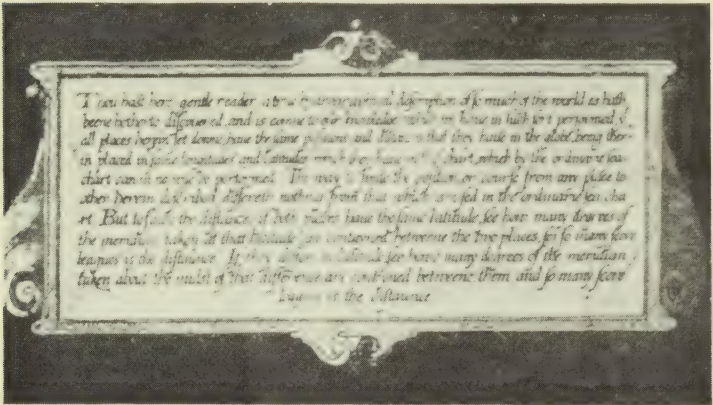 Thou hast here gentle reader a true hydrographical description of so much of the world as hath
beene hetherto discouered, and is comne to our knowledge: which we haue in such sort performed, yt
all places herein set downe, haue the same positions and distances that they haue in the globe, being ther-
in placed in same longitudes and latitudes which they haue in this chart, which by the ordinarie sea
chart can in no wise be performed. The way to finde the position or course from any place to
other herein described differeth nothing from that which is used in the ordinarie sea cha
rt. But to finde the distance, if both places haue the same latitude, see how many degrees of
the meridian taken at that latitude are conteyned betweene the two places, for so many score
leagues is the distance. If they differ in latitude see how many degrees of the meridian
taken about the midst of that difference are conteyned betweene them and so many score
leagues is the distance